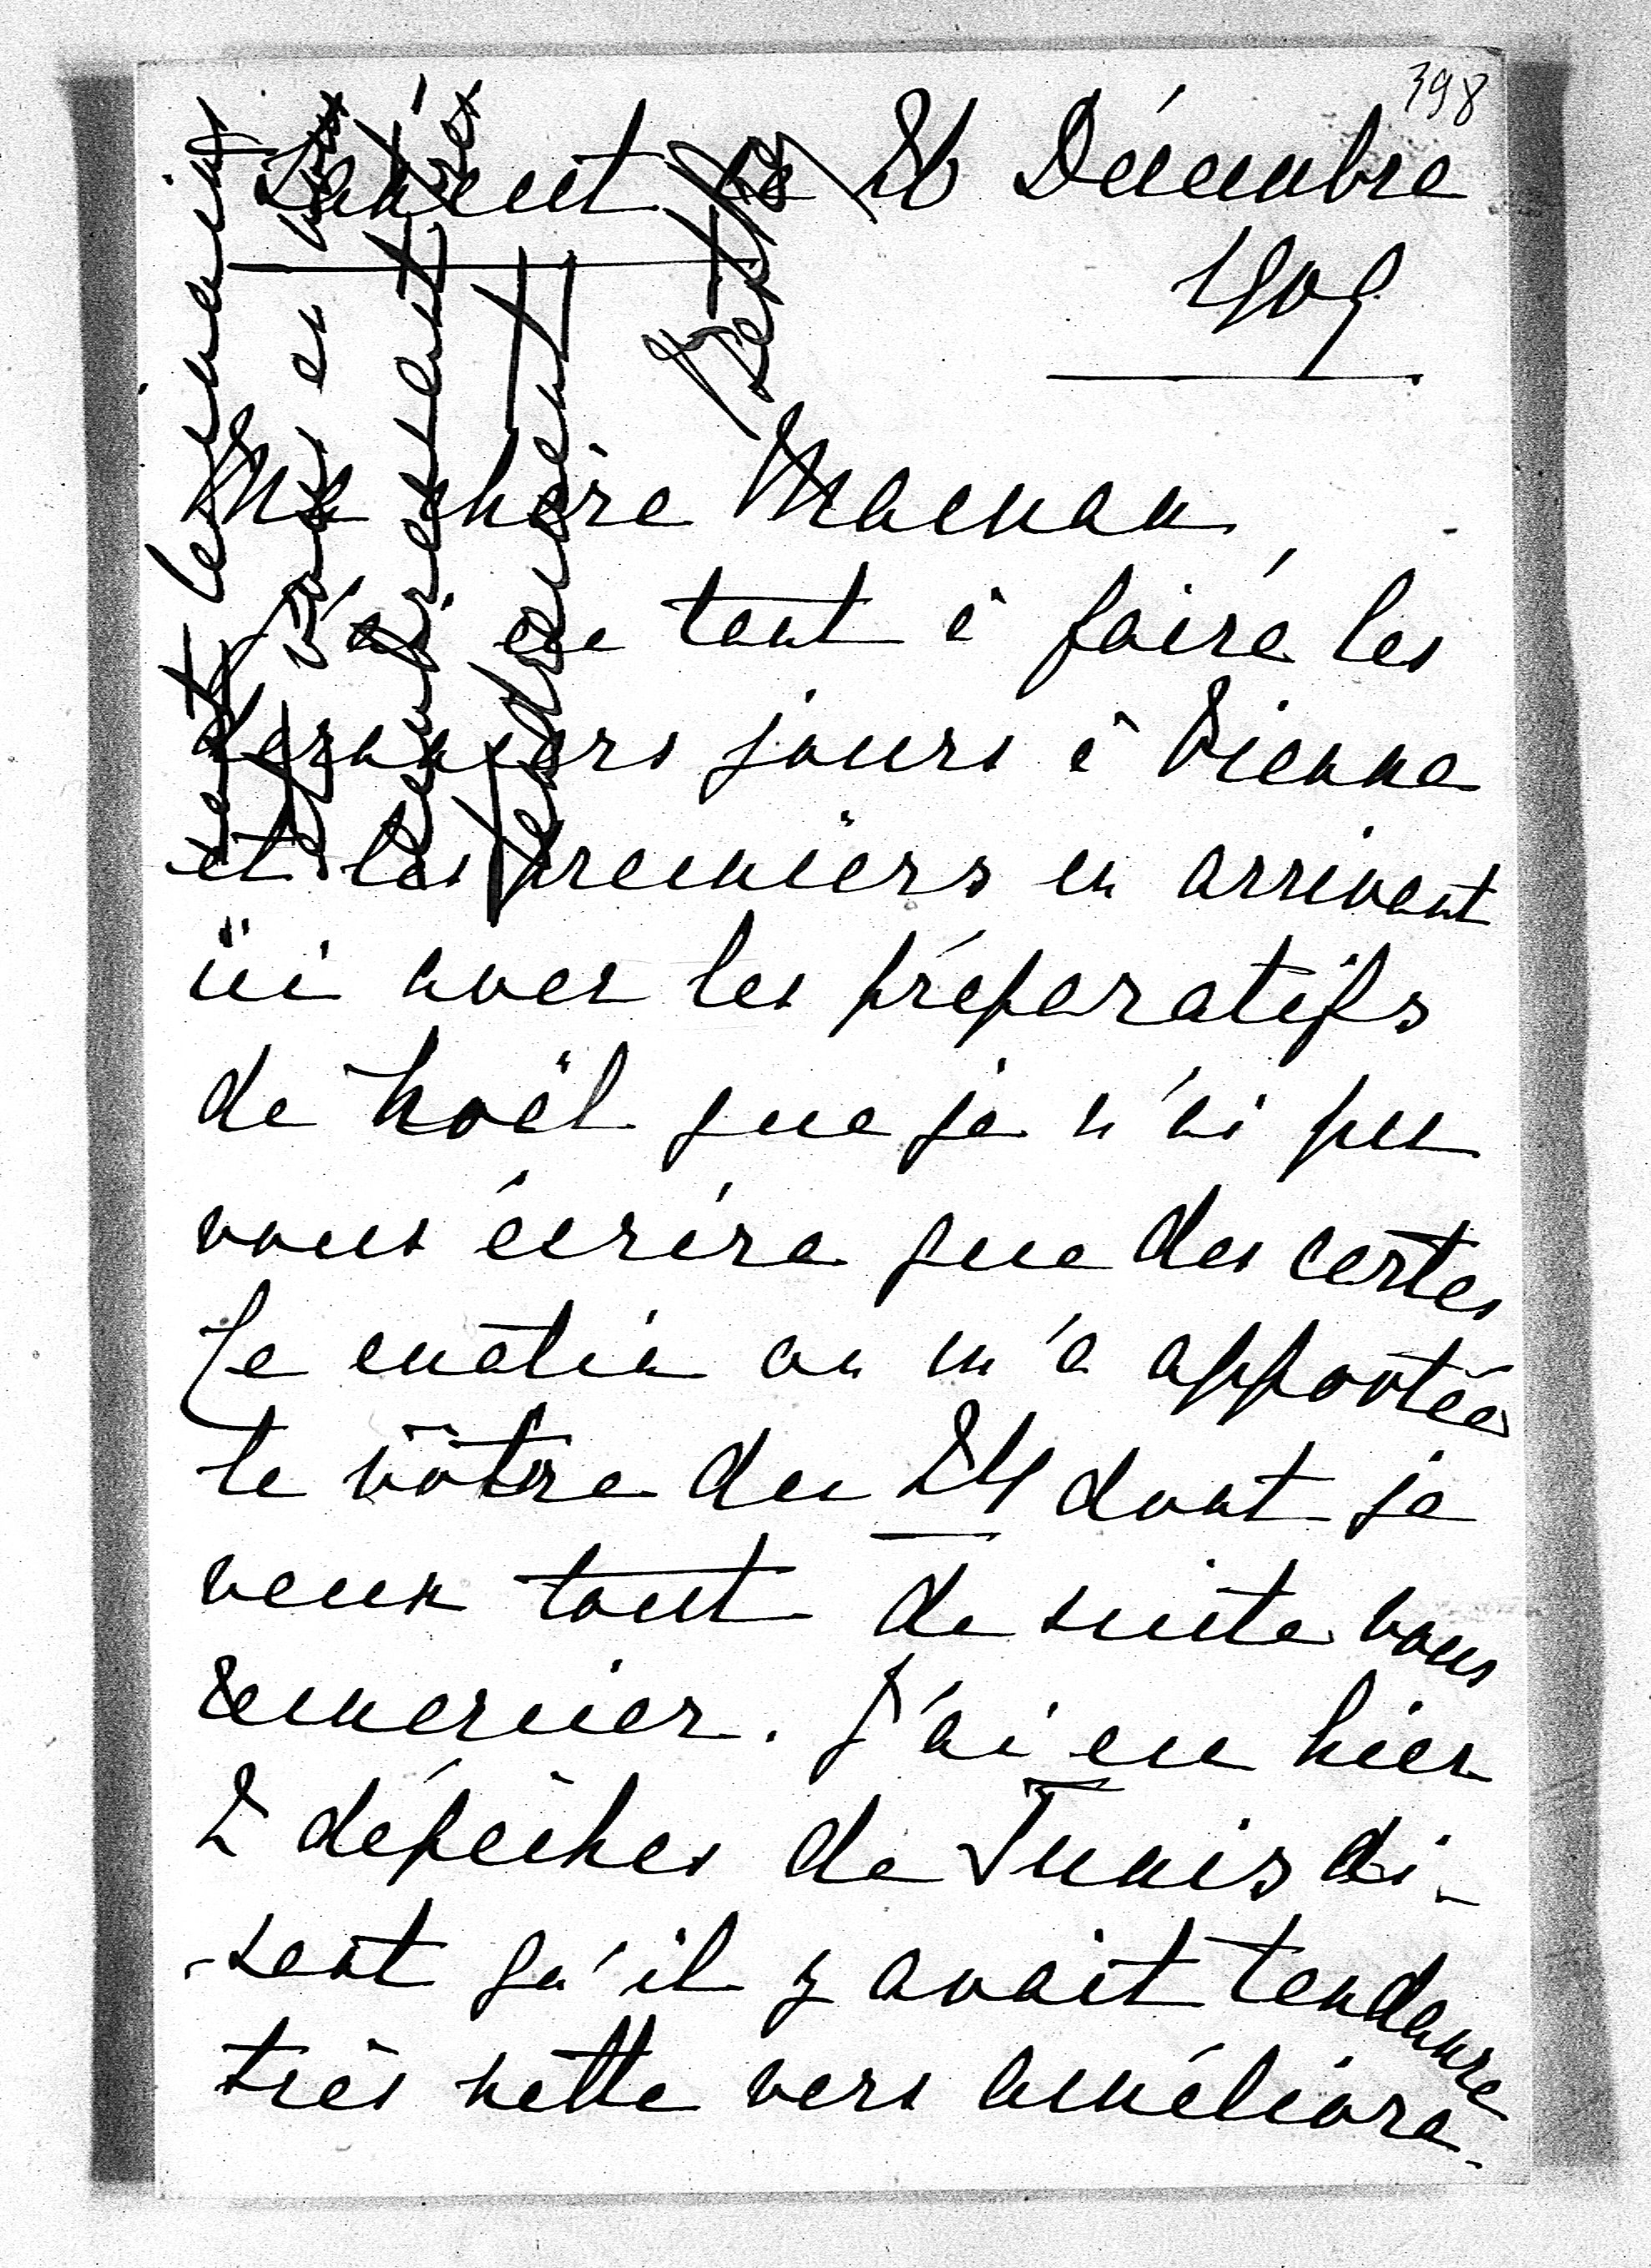 398
Lancut ce 26 Décembre
1909
Ma chère Maman,
J'ai eu tant à faire les
derniers jours à Vienne
et les premiers en arrivant
ici avec les préparatifs
de Noël que je n'ai pu
vous écrire que des cartes
Ce matin on m'a apportée
la vôtre du 24 dont je
veux tout de suite vous
remercier. J'ai eu hier
2 dépêches de Tunis di-
-sant qu'il y avait tendance
très nette vers améliora-
tendrement
Betka